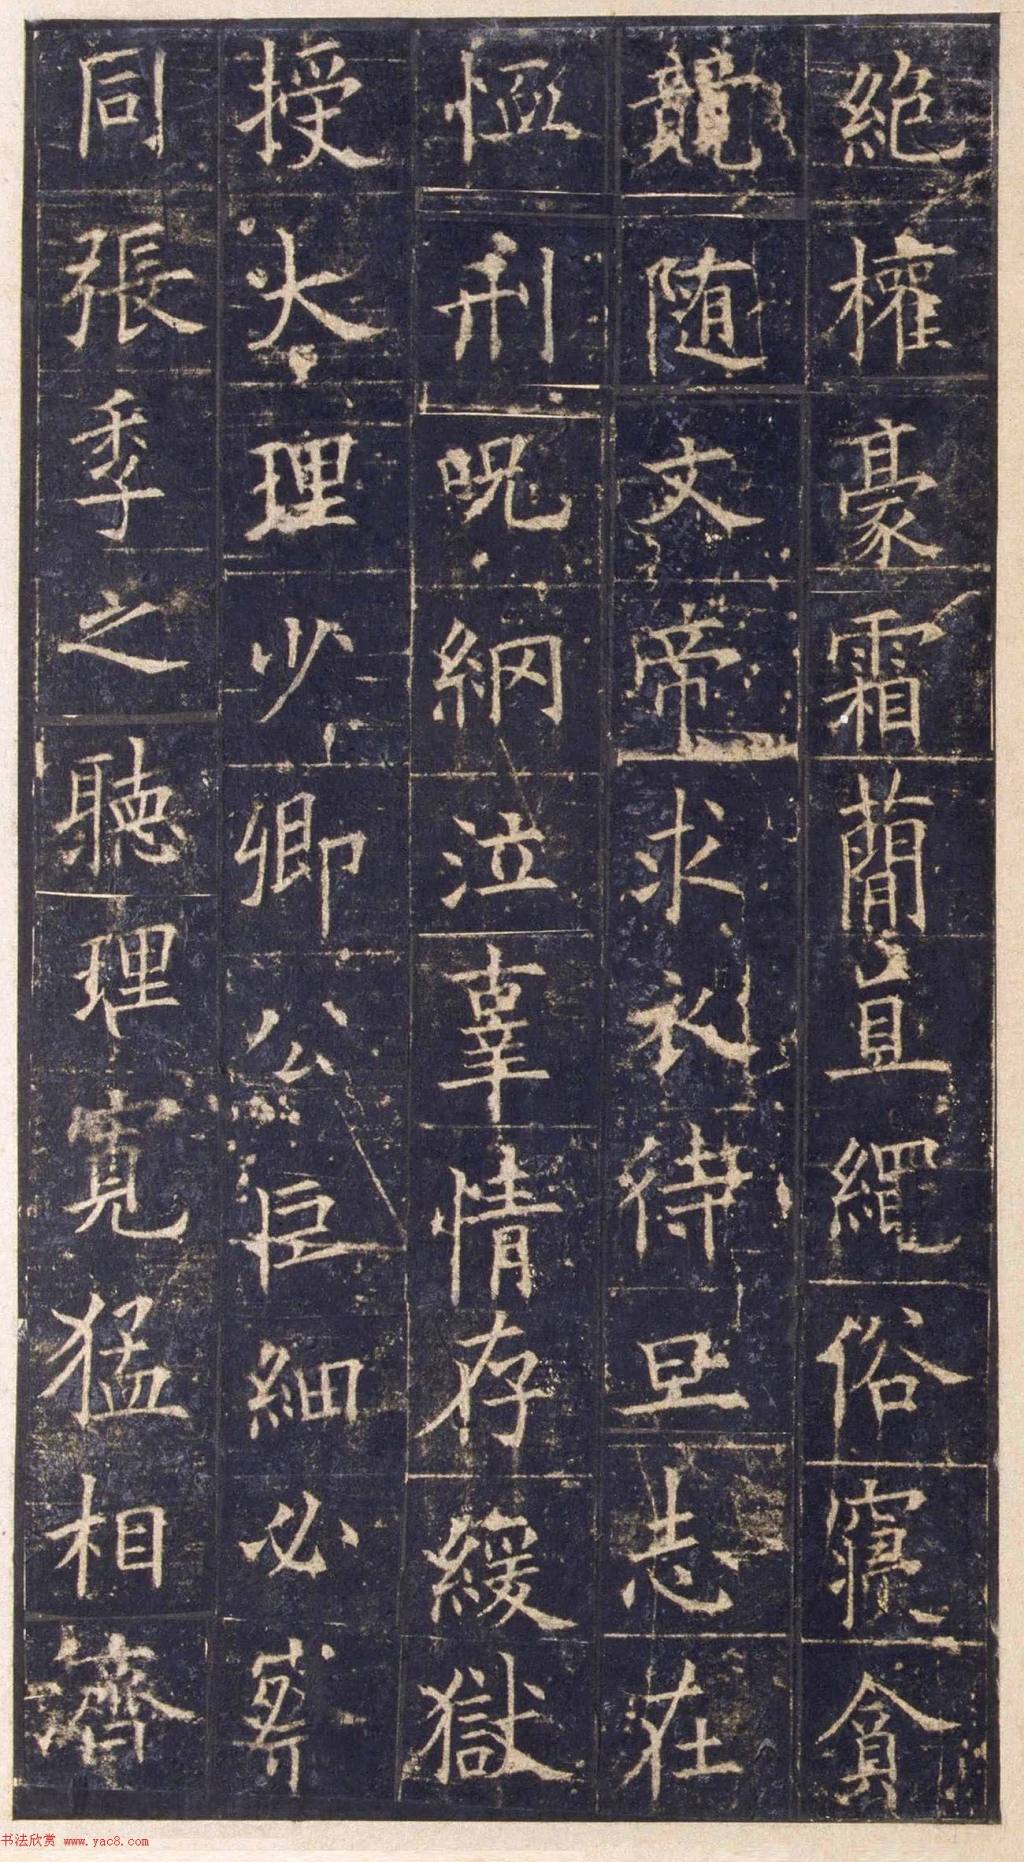 絶權豪霜蕳直繩俗寢貪
競随文帝求衣待旦志在
恤刑呪網泣辜情存緩獄
授大理少卿公巨細必察
同張季之聽理寬猛相濟
书法欣赏 www.yac8.com